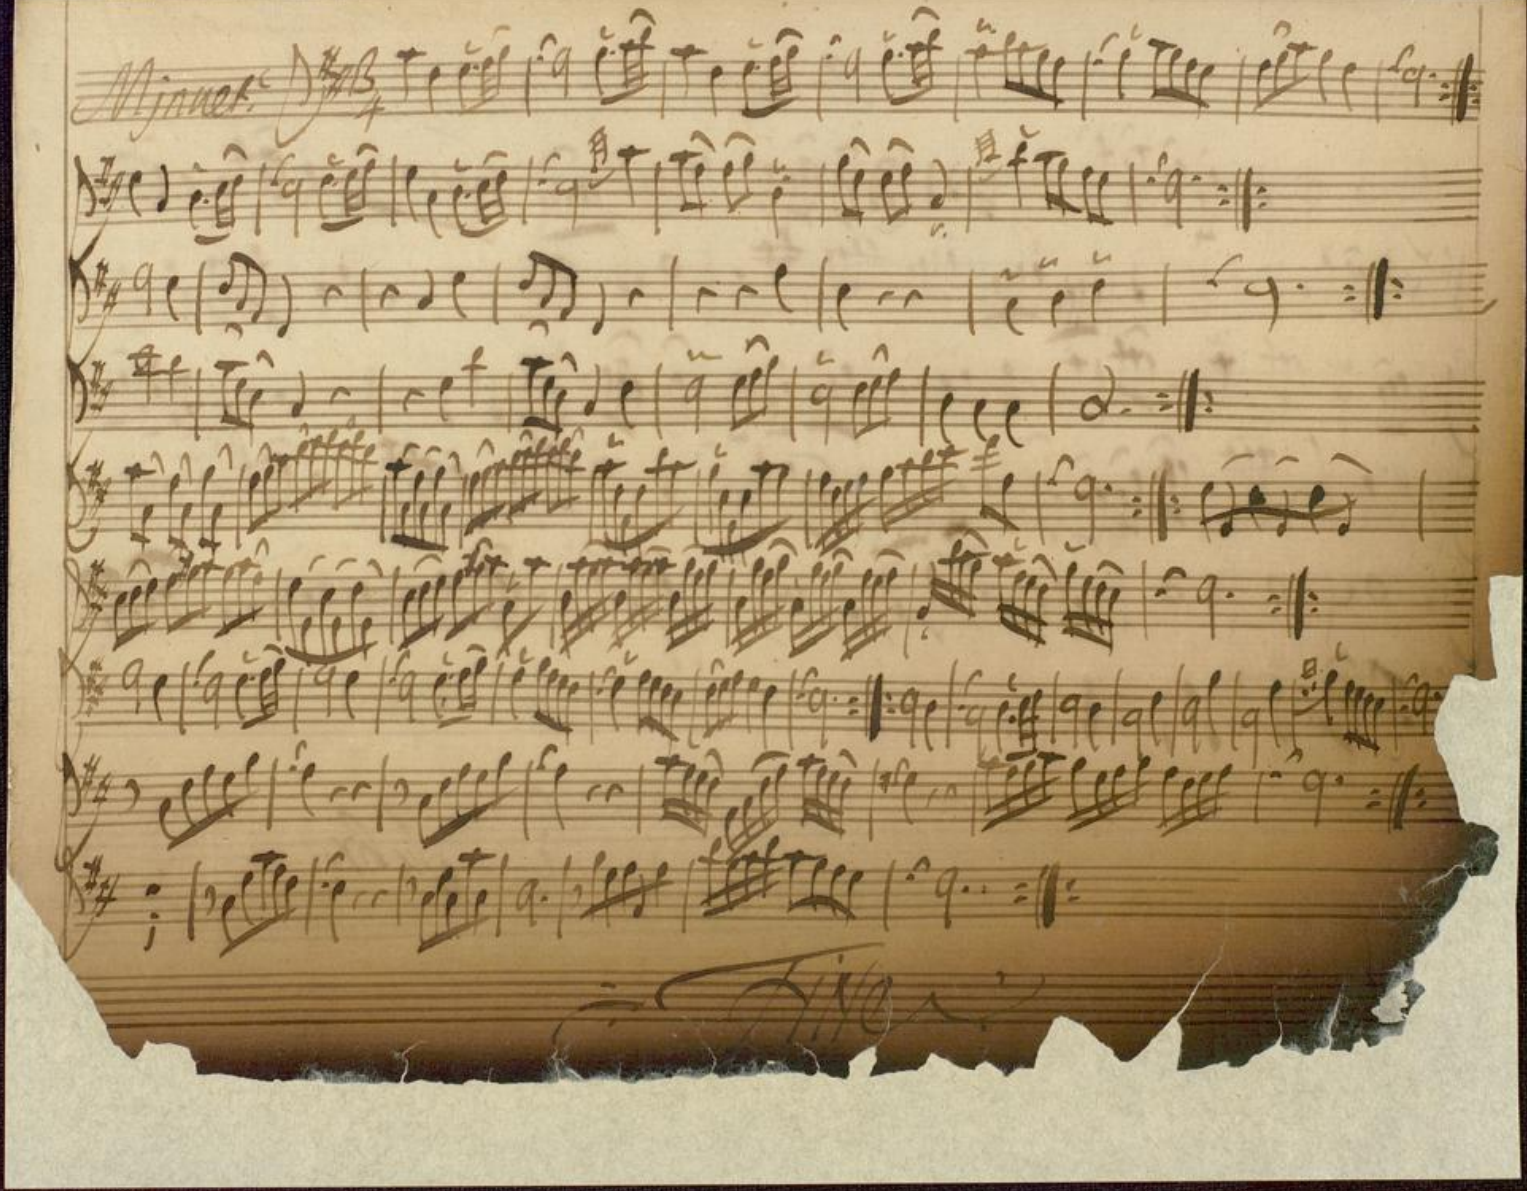 Minuet.
3
4
Fine